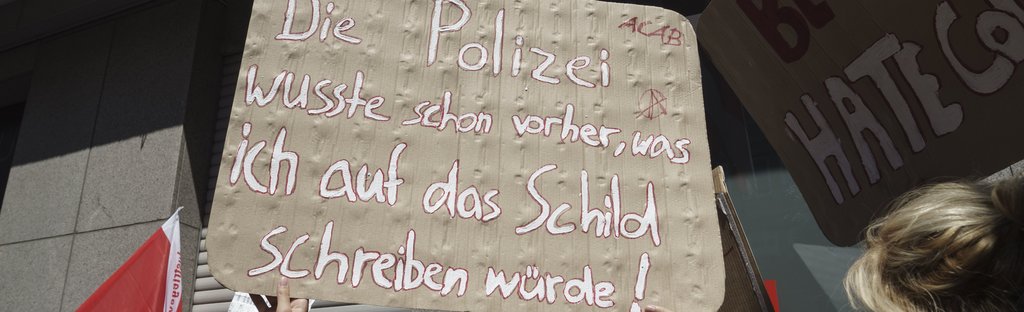 Die Polizei
ACAB
wusste schon vorher, was
ich auf das Schild
schreiben würde!
HATE